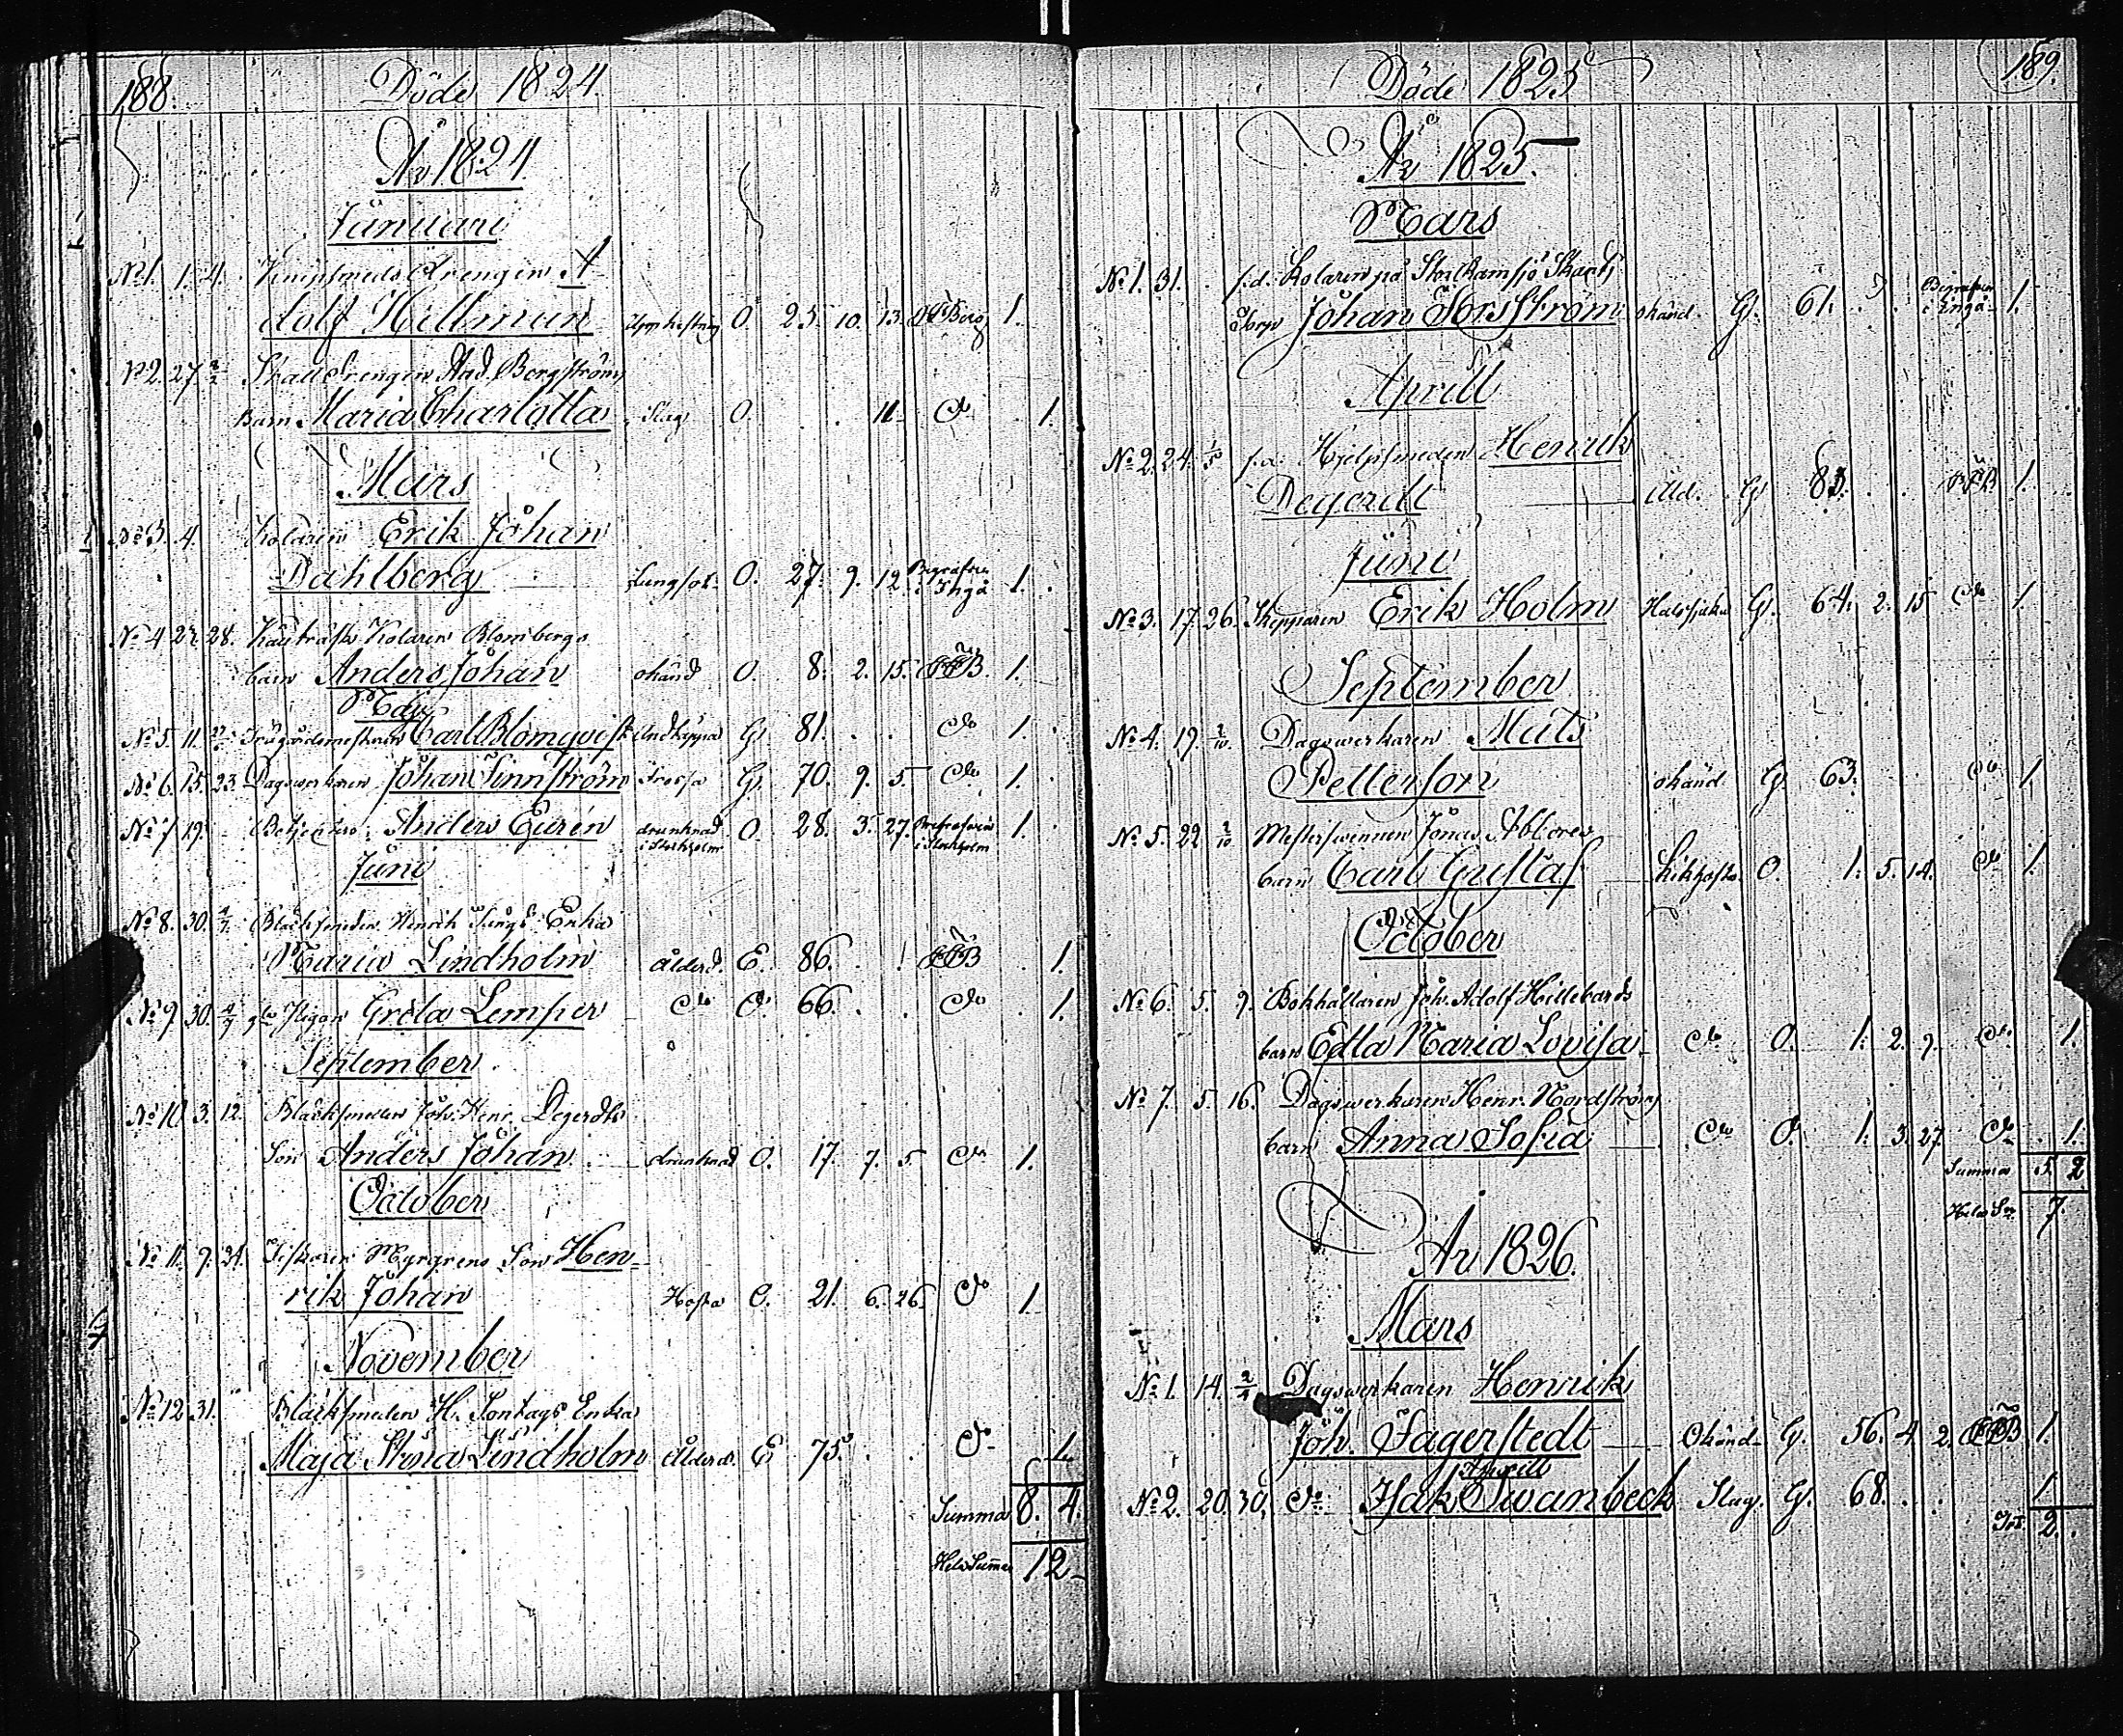 188.
Döde 1824
År 1824
Januari
No 1. 1. 4. Knipsmeds Drengen A-
dolf Hellman O. 25. 10. 13. 1.
No 2. 27 Stalldrengen And. Bergström
Barn Maria Charlotta Slag O. 11. do 1.
Mars
No 3. 4. Kolaren Erik Johan
Dahlberg Lungsot. O. 27. 9. 12. Begrafven i Ingå 1.
No 4 22. 28. Kolaren Blombergs
barn Anders Johan okänd O. 8. 2. 15. 1.
Maj
No 5. 11. Trägårdsmestaren Carl Blomqvist Andtäppa G. 81. do 1.
No 6. 15. 23. Dagsverkaren Johan Finnström Frossa G. 70. 9. 5. do 1.
No 7 19. Betjenten Anders Euren drunknad i Stockholm O. 28. 3. 27. Begrafven i Stockholm 1.
Juni
No 8. 30. Blecksmeden Henrik Enka
Maria Lindholm ålderd. E. 86. 1.
No 9. 30. gla Pigan Greta Lemper do O. 66. do 1.
September
No 10 3. 12. Blecksmeden Joh. Henr. Degerdts
Son Anders Johan drunknad O. 17. 7. 5. do 1.
October
No 11. 9. 24. Fiskaren Myrgrens Son Hen-
rik Johan Hosta O. 21. 6. 26. do 1.
November
No 12 31. Blecksmeden H. Sontags Enka
Maja Stina Lindholm Ålderd. E 75. do 1.
Summa 8. 4.
Hela Summa 12
189.
Döde 1825
År 1825.
Mars
No 1. 31. f.d. Kolaren på
Torp Johan Forsström okänd. G. 61. Begrafven i Ingå 1.
Aprill
No 2. 24. 1/5 f.d. Hjelpsmeden Henrik
Degerdt Åld. G. 83. 1.
Juni
No 3. 17. 26. Skepparen Erik Holm Halssjuka G. 64. 2. 15 do 1.
September
No 4. 19. 2/10 Dagsverkaren Mats
Petterson okänd G. 63. do 1.
No 5. 22 2/10 Mestersvennen Jonas
barn Carl Gustaf Kikhosta. O. 1. 5. 14. do 1.
October
No 6. 5. 9. Bokhållaren Joh. Adolf Hillebards
barn Edla Maria Lovisa do O. 1. 2. 9. do 1.
No 7. 5. 16. Dagsverkaren Henr. Nordströms
barn Anna Sofia do O. 1. 3. 27. do 1.
Summa 5. 2
Hela Sa 7.
År 1826.
Mars
No 1. 14. 2/4 Dagsverkaren Henrik
Joh. Fagerstedt Okänd G. 56. 4 2. 1.
Aprill
No 2. 20. 30. do Isak Swanbeck Slag. G. 68. 1.
Tot 2.